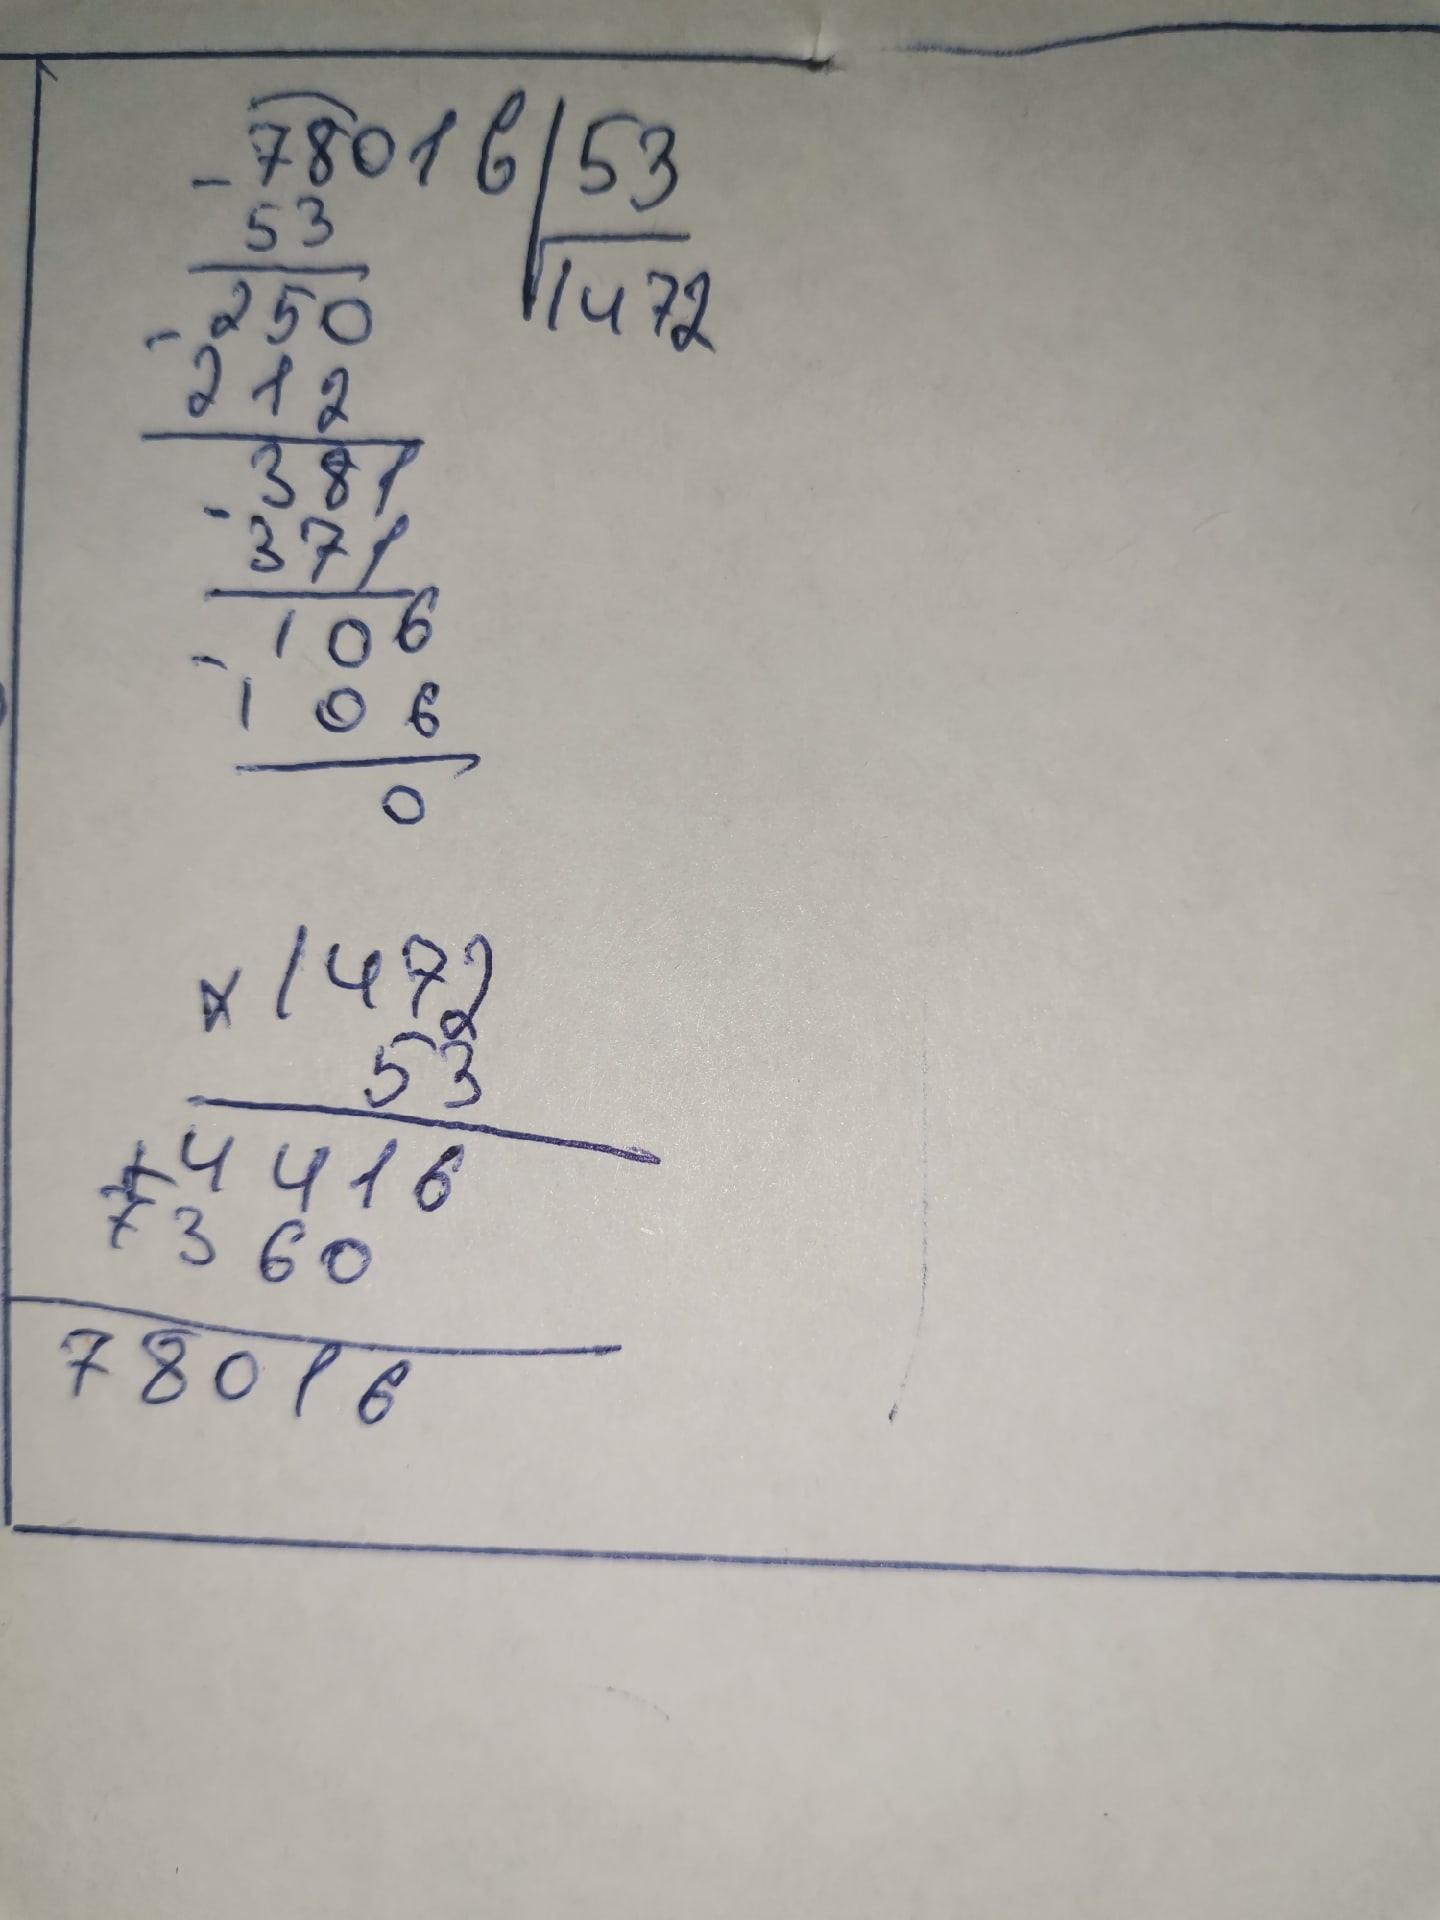 - 78016 | 53
53
1472
- 250
212
- 381
371
- 106
106
0
x 1472
53
+ 4416
7360
78016